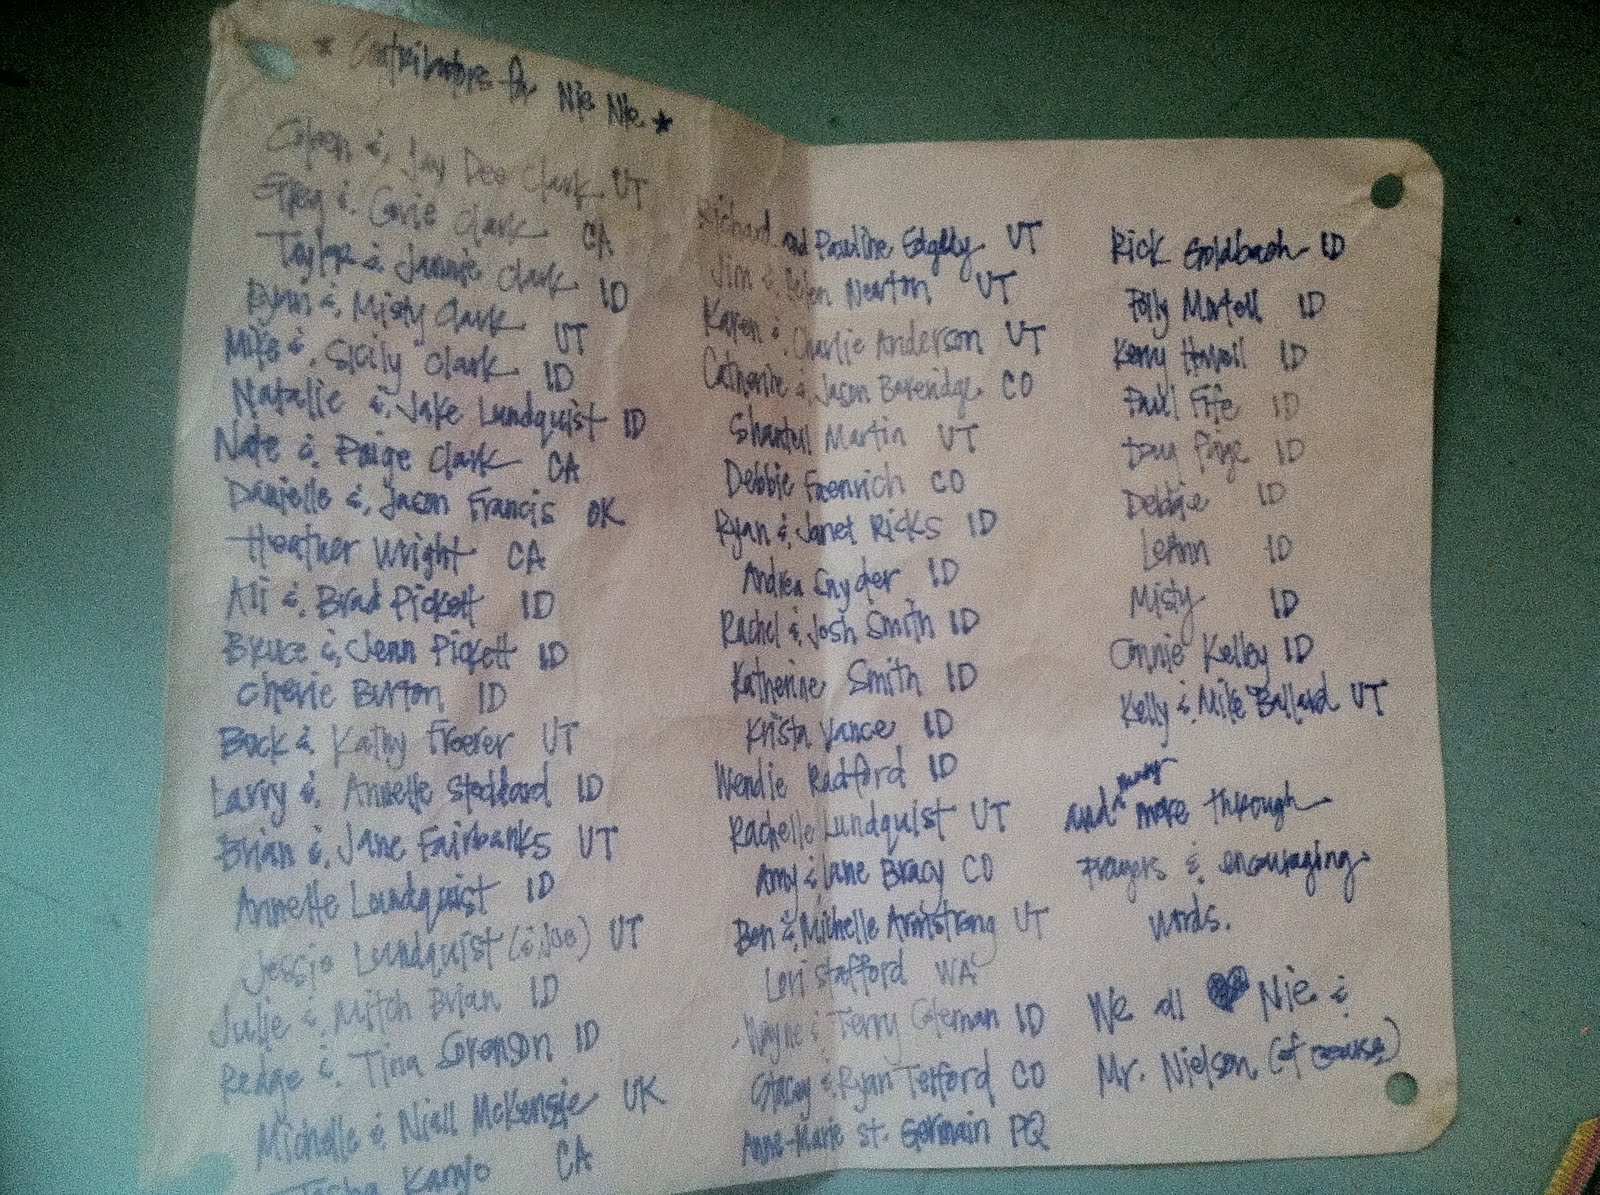 * Contributors for Nie Nie *
& Jay Dee Clark UT
Greg & Clark CA
Taylor & Jannie Clark ID
Rynn & Misty Clark UT
Mike & Sicily Clark ID
Natalie & Jake Lundquist ID
Nate & Paige Clark CA
Danielle & Jason Francis OK
Heather Wright CA
Ali & Brad Pickett ID
Bruce & Jenn Pickett ID
Cherie Burton ID
Bock & Kathy Froerer UT
Larry & Annette Stoddard ID
Brian & Jane Fairbanks UT
Annette Lundquist ID
Jessie Lundquist (& Joe) UT
Julie & Mitch Brian ID
Redge & Tina ID
Michelle & Niall McKenzie UK
Tosha CA
Richard and Pauline UT
Jim & Helen Newton UT
Karen & Charlie Anderson UT
Catherine & Jason CO
Shantell Martin UT
Debbie CO
Ryan & Janet Ricks ID
Andrea Snyder ID
Rachel & Josh Smith ID
Katherine Smith ID
Krista Vance ID
Wendie Radford ID
Rachelle Lundquist UT
Amy & Lane Bracy CO
Ben & Michelle Armstrong UT
Lori Stafford WA
Wayne & Terry Coleman ID
Stacey & Ryan Telford CO
Anne-Marie St. Germain PQ
Rick Goldbach ID
Polly Martell ID
Kerry Howell ID
Paul Fife ID
Doug Paige ID
Debbie ID
LeAnn ID
Misty ID
Connie Kelley ID
Kelly & Mike Ballard UT
and many more through
Prayers & encouraging
words.
We all ♥ Nie &
Mr. Nielson (of course)